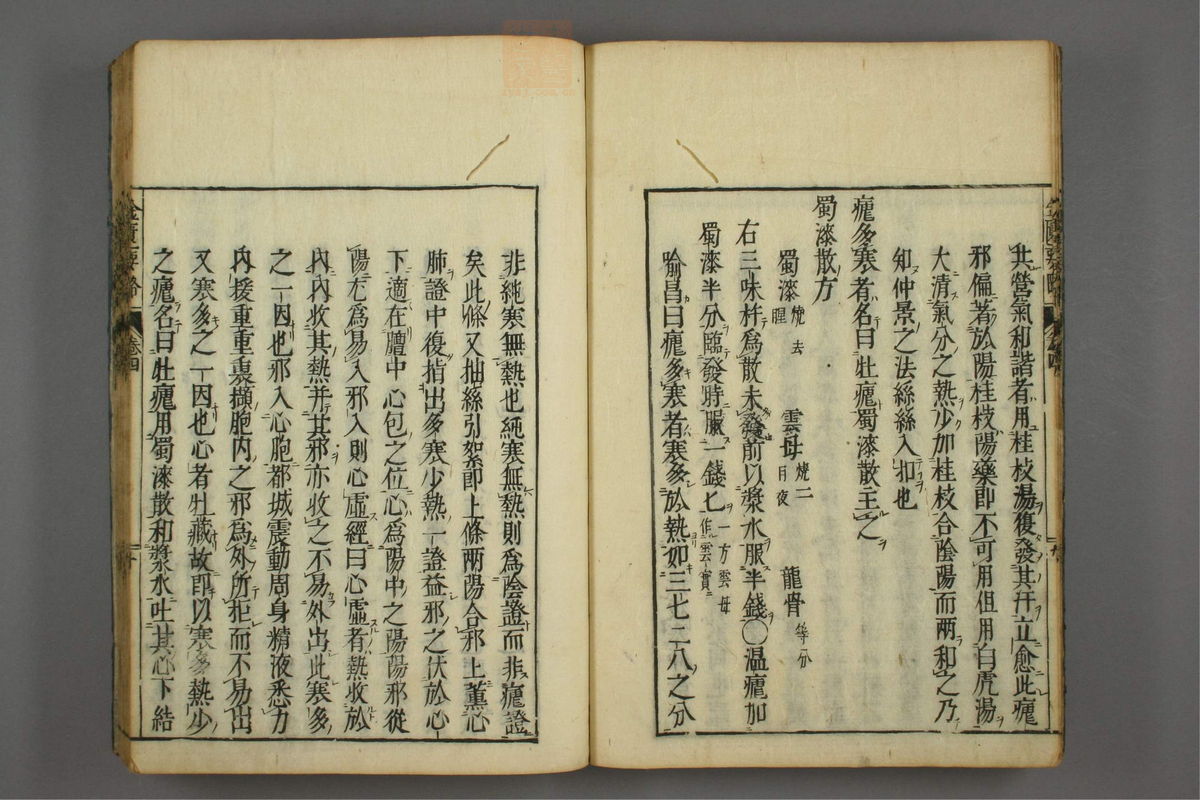 其營氣和諧者用桂枝湯復發其汗立愈此瘧
邪偏著於陽桂枝陽藥即不可用但用白虎湯
大清氣分之熱少加桂枝合陰陽而兩和之乃
知仲景之法絲絲入扣也
瘧多寒者名曰牡瘧蜀漆散主之
蜀漆散方
蜀漆燒去腥 雲母燒二日夜 龍骨等分
右三味杵為散未發前以漿水服半錢○溫瘧加
蜀漆半分臨發時服一錢匕一方雲母作雲實
喻昌曰瘧多寒者寒多於熱如三七二八之分
非純寒無熱也純寒無熱則為陰證而非瘧證
矣此條又抽絲引絮即上條兩陽合邪上薰心
肺證中復指出多寒少熱一證益邪之伏於心
下適在膻中心包之位心為陽中之陽陽邪從
陽尤為易入邪入則心虛經曰心虛者熱收於
內內收其熱并其邪亦收之不易外出此寒多
之一因也邪入心胞都城震動周身精液悉力
內援重重裹擷胞內之邪為外所拒而不易出
又寒多之一因也心者牡藏故即以寒多熱少
之瘧名曰牡瘧用蜀漆散和漿水吐其心下結
金匱要略 卷四